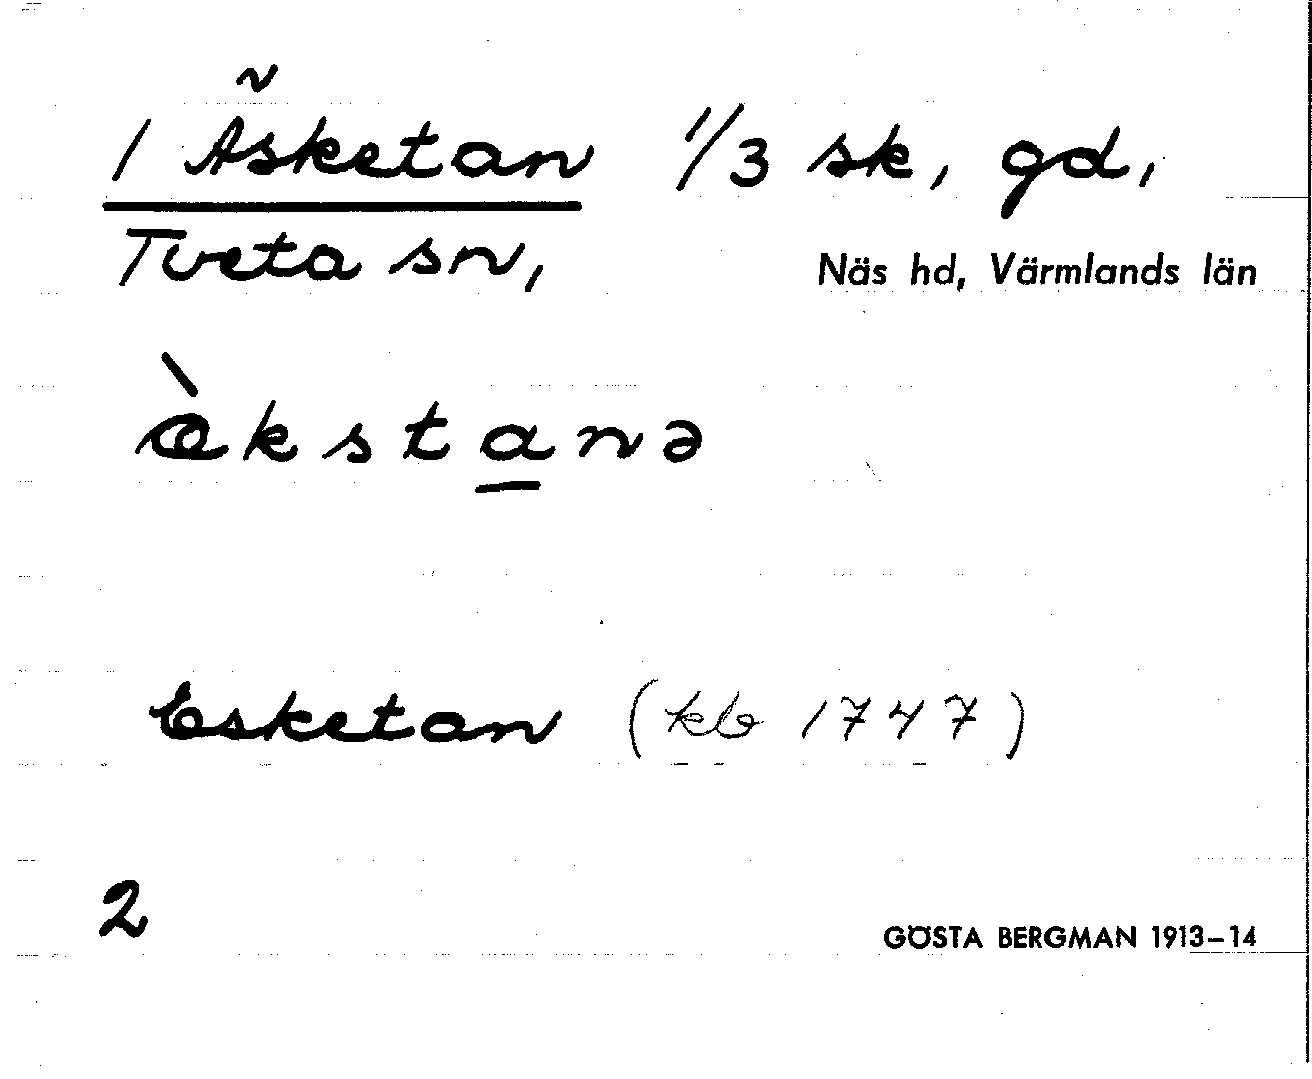 1 Äsketan 1/3 sk, gd,
Tveta sn, Näs hd, Värmlands län
æ̀ksta̲nə
Esketan (kb 1747)
2
GÖSTA BERGMAN 1913–14